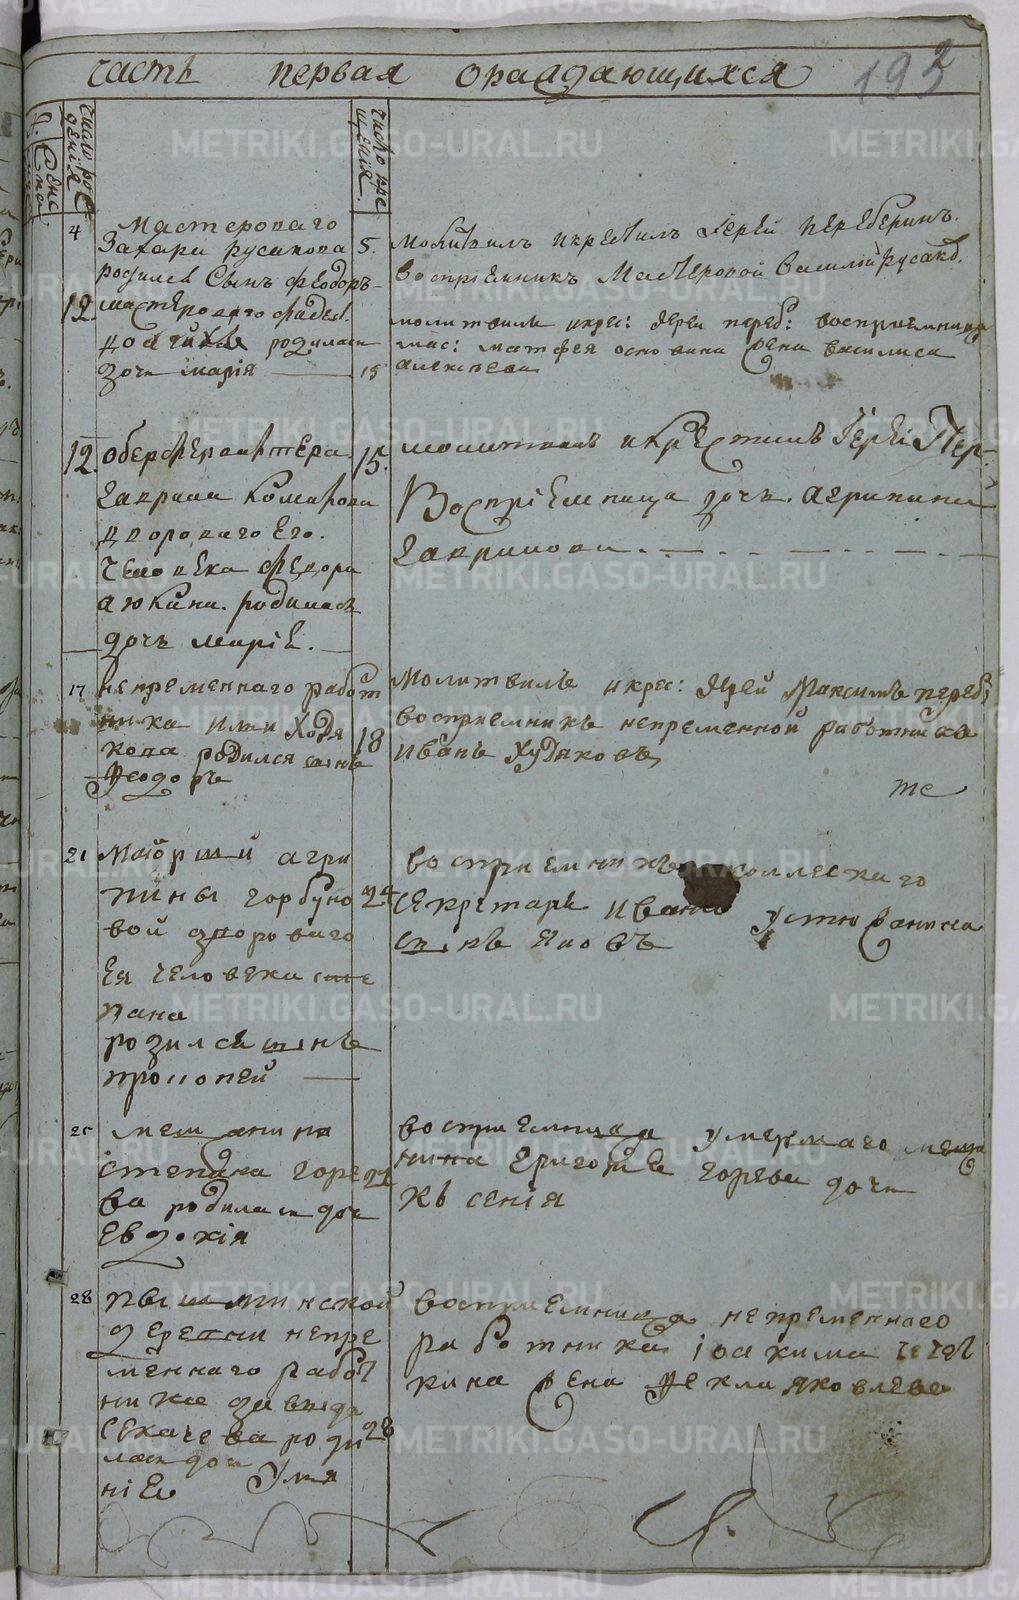 часть первая о раждающихся
193
число рождения
число крещения
4
Мастероваго
Захара Русакова
родился Сынъ Феодоръ
5.
молитвилъ и крестилъ Іерей Переберинъ.
воспріемникъ Мастеровой Василій Русаков.
12.
мастероваго
родилась
дочь марія
15
молитвилъ и крес: Іерей переб: восприемница
мас: матфея жена василиса
алексеева
12.
Гаврила Комарова
двороваго Его.
человека Федора
родилась
дочь марія.
15.
молитвилъ и крестилъ Іерей Пер.
Воспріемница дочь. агрипина
гаврилова
17
непременнаго работ
ника Ильи Худя
кова родился сынъ
Феодоръ
18
Молитвилъ и крес: Іерей Максимъ переб:
восприемникъ непременной работникъ
Иванъ Худяковъ
те
21
Маіорши агри
пины горбуно
вой двороваго
Ея человека сте
пана
родился сынъ
прокопей
24
восприемникъ коллескаго
секретаря Ивана Устюжанина
сынъ яковъ
25
мещанина
степана горе
ва родилась доч
Евдокія
27
восприемница умершаго меща
нина григорья горева дочь
ксенія
28
пышминской
деревни непре
меннаго работ
ника давыда
секачева роди
лась доч
28
восприемница непременнаго
работника іоакима чечет
кина жена Фекла яковлева